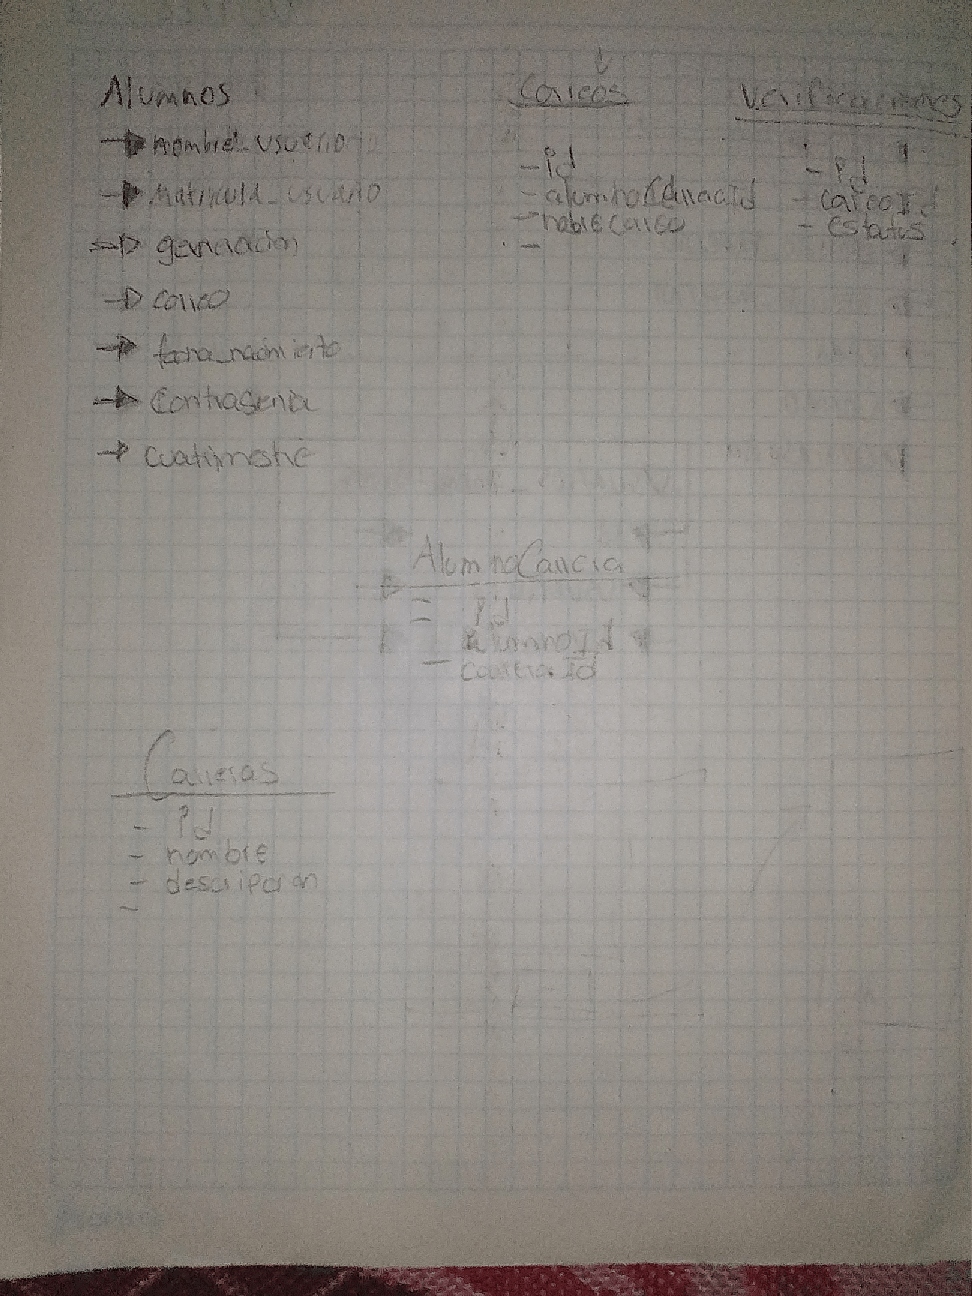 Alumnos
nombre_usuario
Matricula_usuario
generacion
correo
fecha_nacimiento
contrasena
cuatrimestre
Correos
- id
- alumnoCarreraId
- noblecorreo
-
Verificaciones
- id
- correoId
- Estatus
AlumnoCarrera
- id
alumnoId
- carreraId
Carreras
- id
- nombre
- descripcion
-